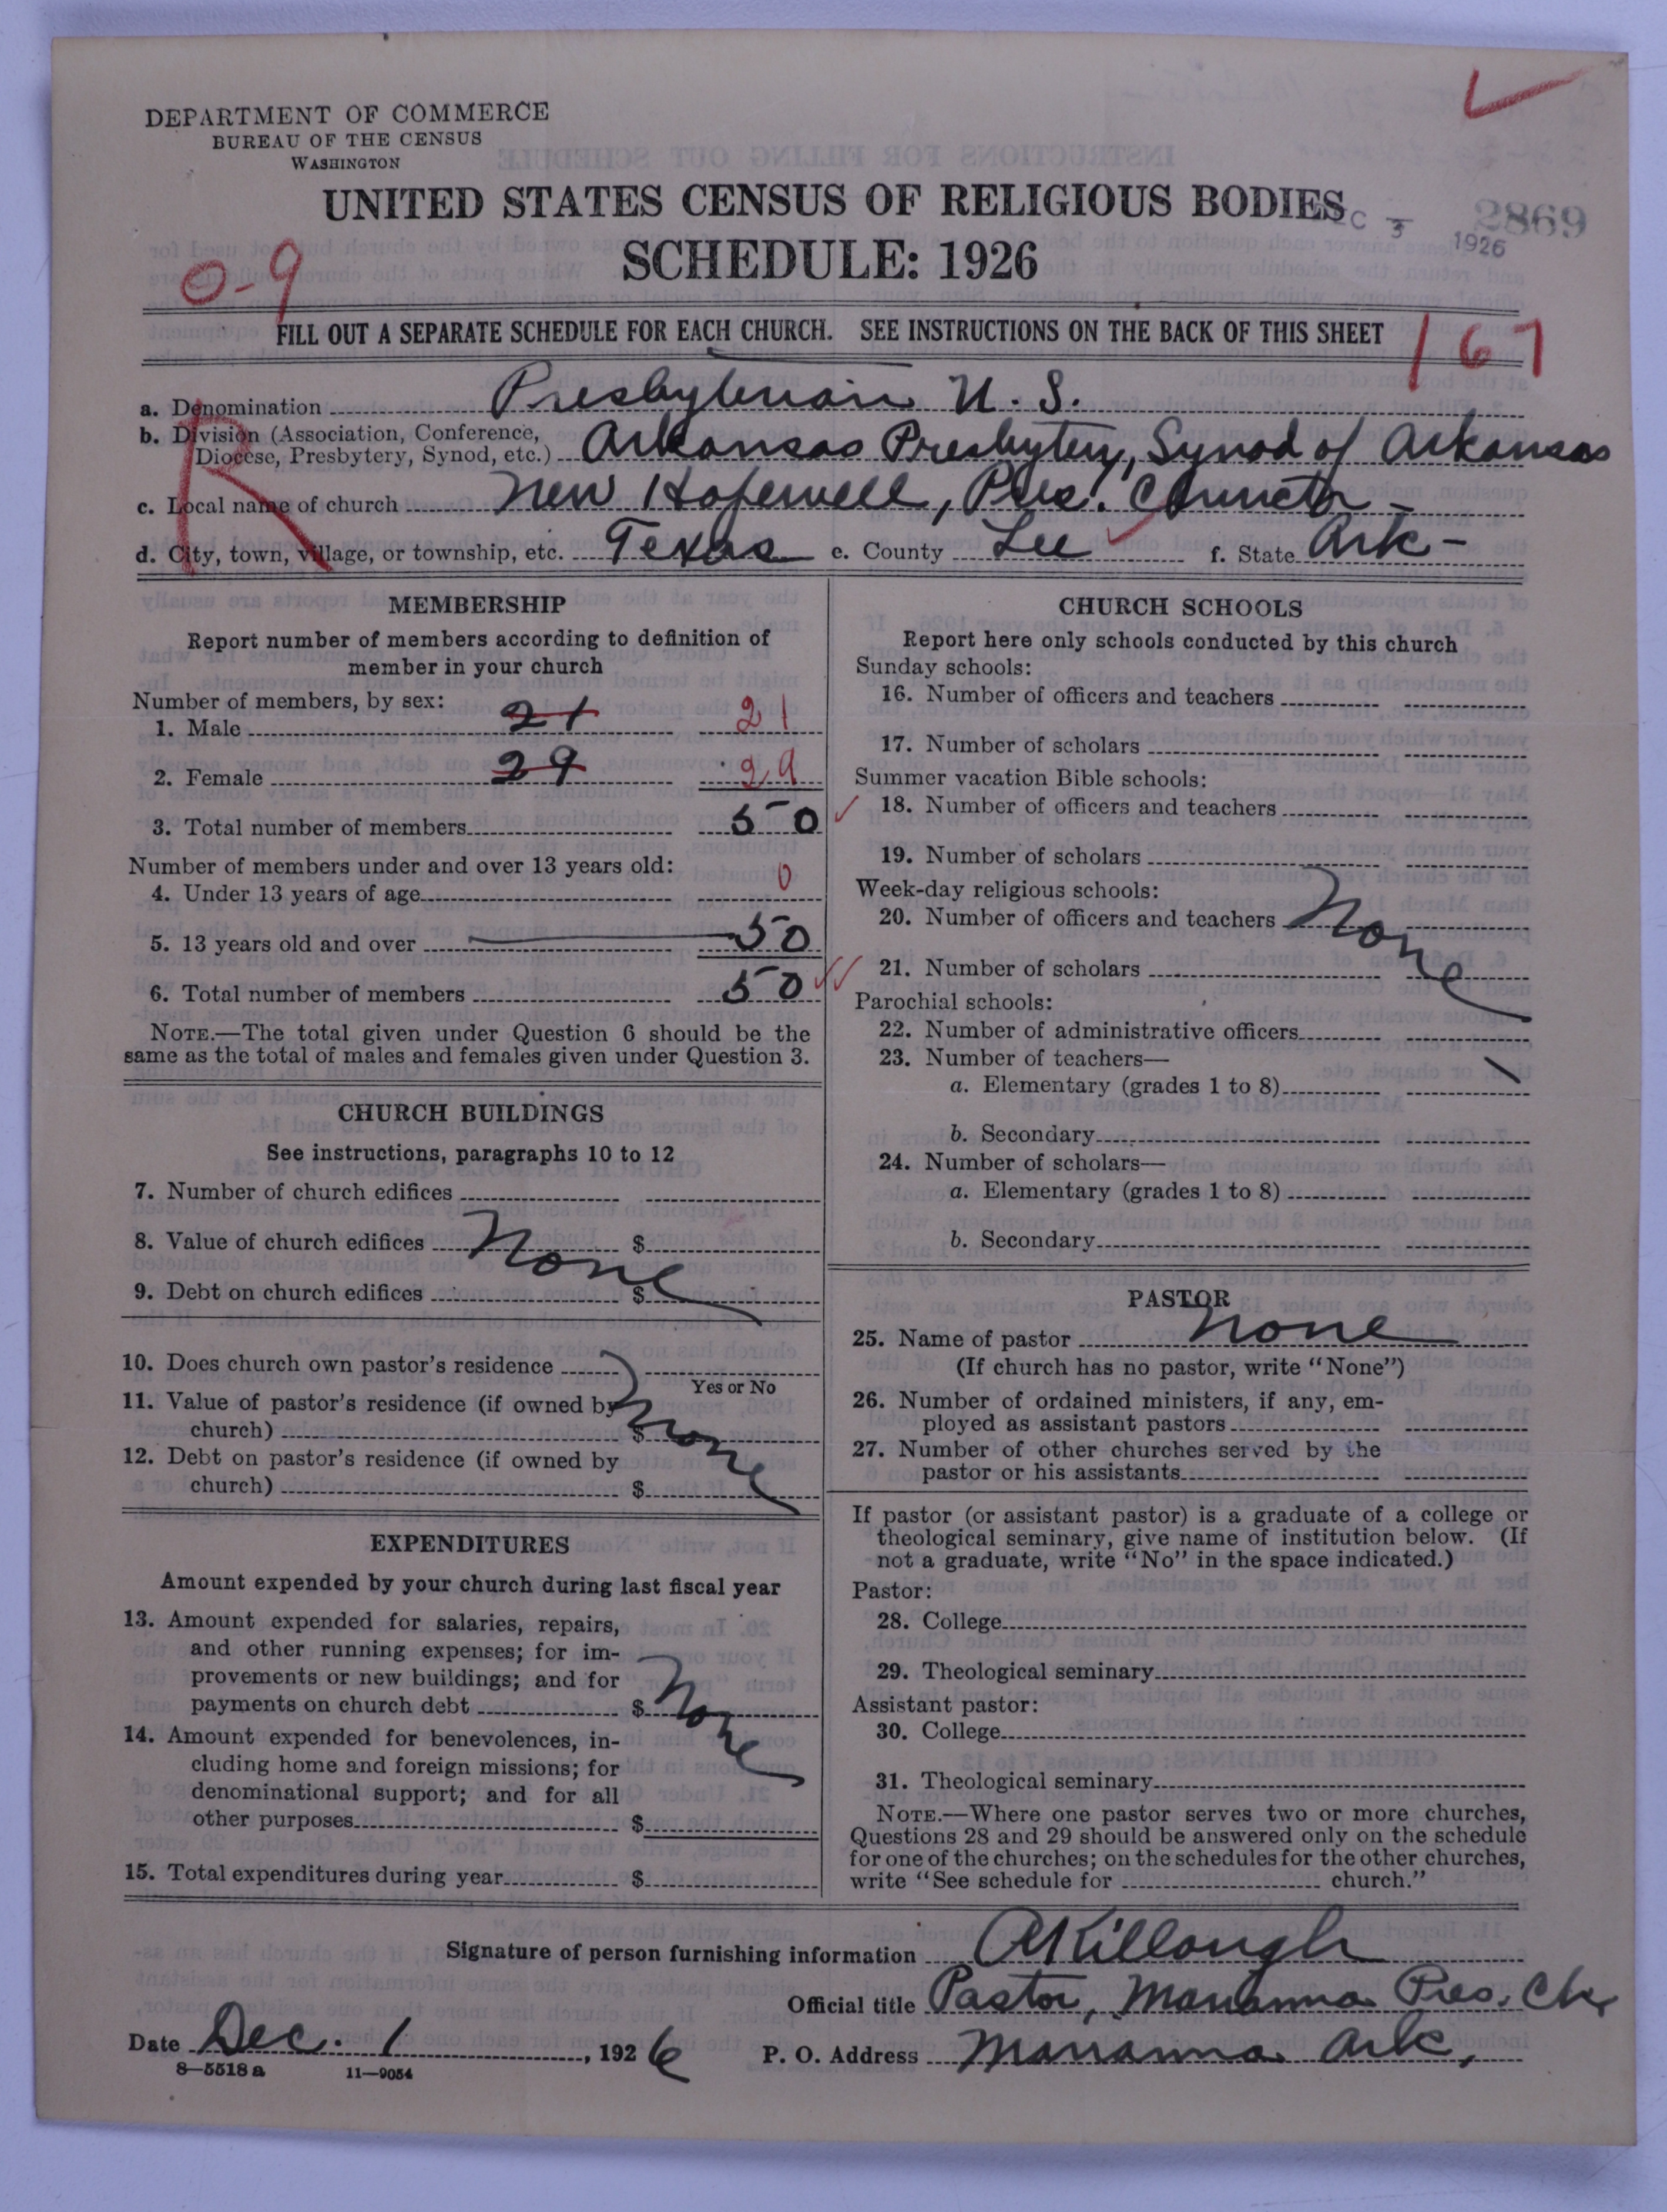 DEPARTMENT OF COMMERCE
BUREAU OF THE CENSUS
WASHINGTON
UNITED STATES CENSUS OF RELIGIOUS BODIES
C 3 1926
2869
SCHEDULE: 1926
0-9
FILL OUT A SEPARATE SCHEDULE FOR EACH CHURCH. SEE INSTRUCTIONS ON THE BACK OF THIS SHEET
167
R
a. Denomination Presbyterian U. S.
b. Division (Association, Conference, Diocese, Presbytery, Synod, etc.) Arkansas Presbytery, Synod of Arkansas
c. Local name of church New Hopewell, Pres. Church -
d. City, town, village, or township, etc. Texas e. County Lee f. State Ark -
MEMBERSHIP
Report number of members according to definition of
member in your church
Number of members, by sex:
1. Male 21 21
2. Female 29 29
3. Total number of members 50
Number of members under and over 13 years old:
4. Under 13 years of age 0
5. 13 years old and over 50
6. Total number of members 50
NOTE.—The total given under Question 6 should be the
same as the total of males and females given under Question 3.
CHURCH BUILDINGS
See instructions, paragraphs 10 to 12
7. Number of church edifices
8. Value of church edifices $
None
9. Debt on church edifices $
10. Does church own pastor's residence
Yes or No
11. Value of pastor's residence (if owned by
church) $
None
12. Debt on pastor's residence (if owned by
church) $
EXPENDITURES
Amount expended by your church during last fiscal year
13. Amount expended for salaries, repairs,
and other running expenses; for im-
provements or new buildings; and for
payments on church debt $
None
14. Amount expended for benevolences, in-
cluding home and foreign missions; for
denominational support; and for all
other purposes $
15. Total expenditures during year $
CHURCH SCHOOLS
Report here only schools conducted by this church
Sunday schools:
16. Number of officers and teachers
17. Number of scholars
Summer vacation Bible schools:
18. Number of officers and teachers
19. Number of scholars
Week-day religious schools:
20. Number of officers and teachers
None
21. Number of scholars
Parochial schools:
22. Number of administrative officers
23. Number of teachers—
a. Elementary (grades 1 to 8)
b. Secondary
24. Number of scholars—
a. Elementary (grades 1 to 8)
b. Secondary
PASTOR
25. Name of pastor None
(If church has no pastor, write "None")
26. Number of ordained ministers, if any, em-
ployed as assistant pastors
27. Number of other churches served by the
pastor or his assistants
If pastor (or assistant pastor) is a graduate of a college or
theological seminary, give name of institution below. (If
not a graduate, write "No" in the space indicated.)
Pastor:
28. College
29. Theological seminary
Assistant pastor:
30. College
31. Theological seminary
NOTE.—Where one pastor serves two or more churches,
Questions 28 and 29 should be answered only on the schedule
for one of the churches; on the schedules for the other churches,
write "See schedule for church."
Signature of person furnishing information AKillough
Official title Pastor, Marianna Pres. Ch.
Date Dec. 1, 1926 P. O. Address Marianna Ark.
8—5518 a 11—9054